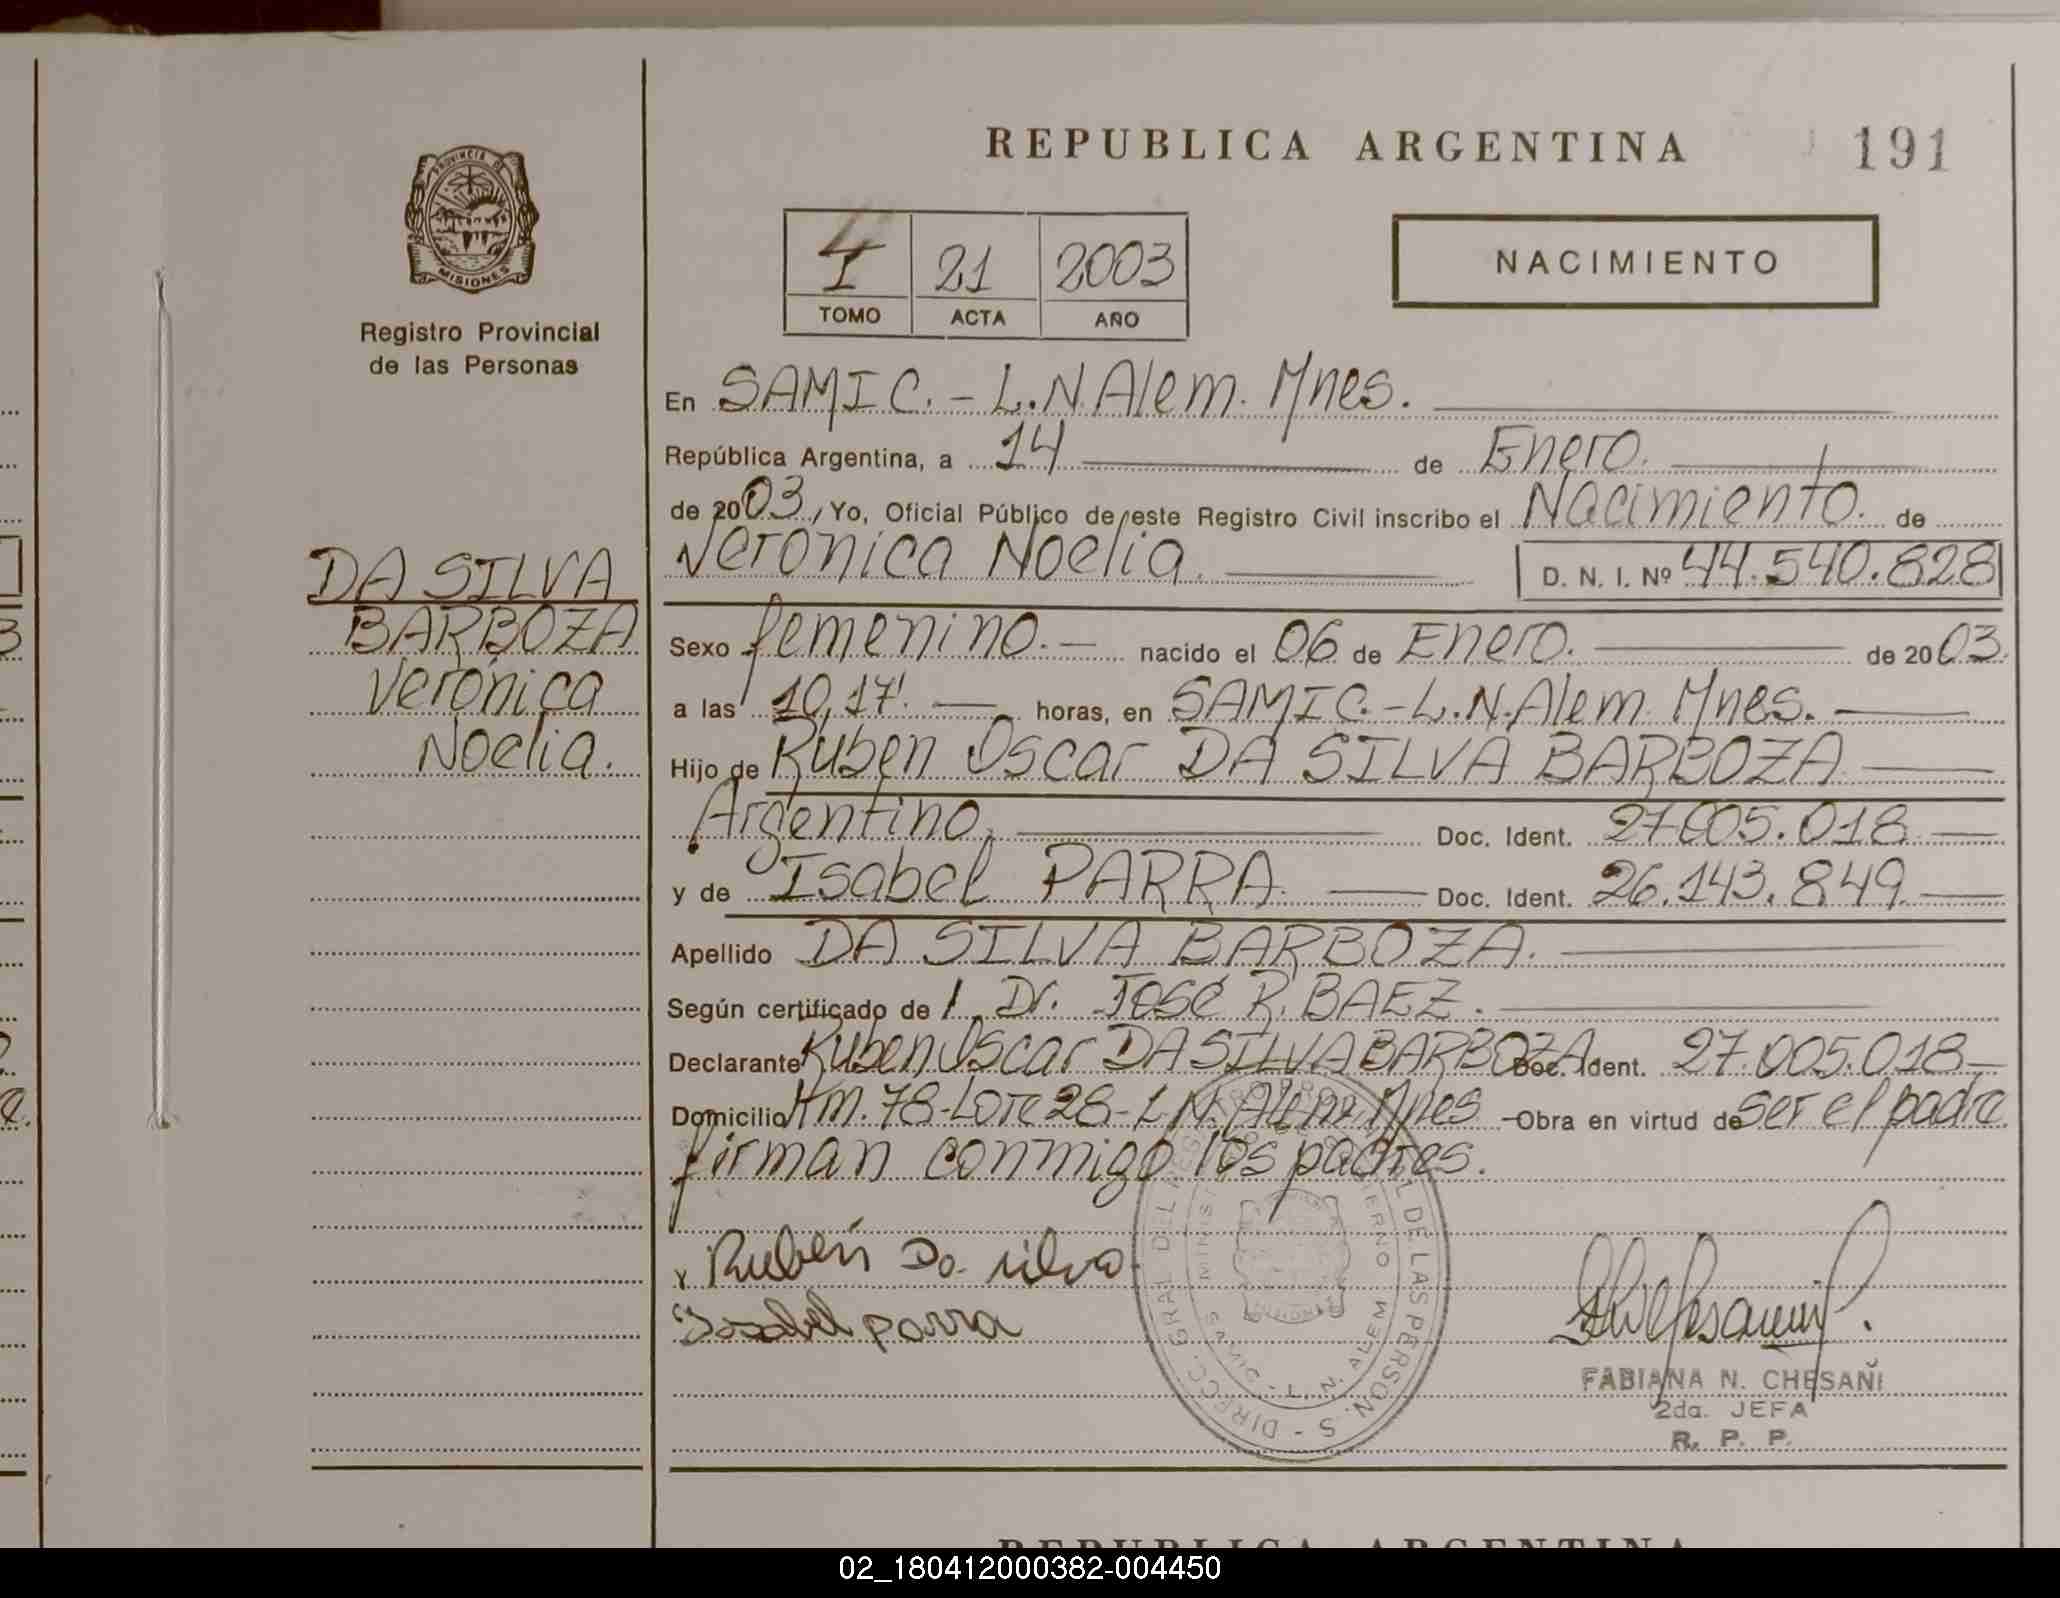 REPUBLICA ARGENTINA
191
PROVINCIA DE
MISIONES
Registro Provincial
de las Personas
I 21 2003
TOMO ACTA AÑO
NACIMIENTO
En SAMIC.- L.N.Alem. Mnes.
República Argentina, a 14 de Enero.
de 2003, Yo, Oficial Público de este Registro Civil inscribo el Nacimiento. de
Verónica Noelia. D. N. I. Nº 44.540.828
DA SILVA
BARBOZA
Verónica
Noelia.
Sexo femenino.- nacido el 06 de Enero. de 2003.
a las 10,17'. horas, en SAMIC.-L.N.Alem. Mnes.
Hijo de Ruben Oscar DA SILVA BARBOZA
Argentino. Doc. Ident. 27.005.018
y de Isabel PARRA. Doc. Ident. 26.143.849.
Apellido DA SILVA BARBOZA.
Según certificado de Dr. José R. BAEZ.
Declarante Ruben Oscar DA SILVA BARBOZA Doc. Ident. 27.005.018
Domicilio Km.78-Lote 28-L.N.Alem.Mnes -Obra en virtud de ser el padre
firman conmigo los padres.
Rubén Da silva
Isabel parra
DIRECC. GRAL DEL
DE LAS PERSON. S
SAMIC - L. N. ALEM
FABIANA N. CHESAÑI
2da. JEFA
R. P. P.
REPUBLICA ARGENTINA
02_180412000382-004450